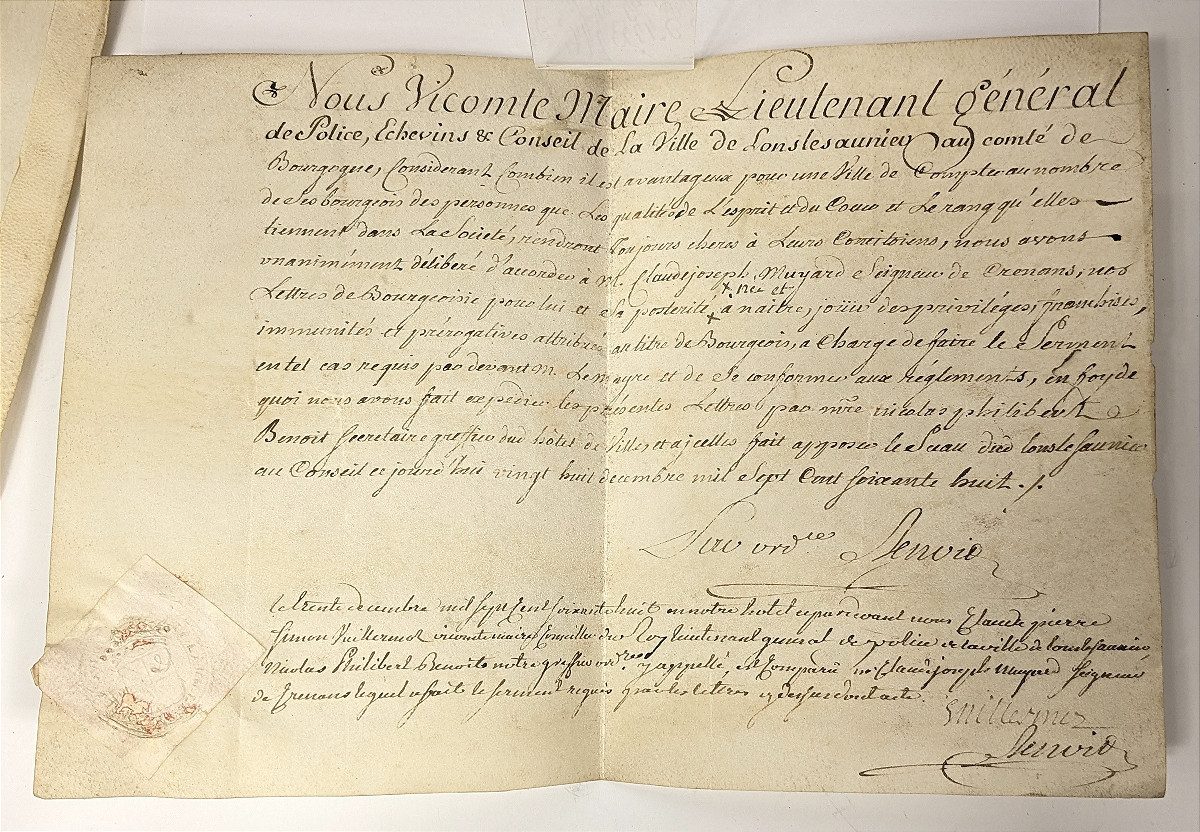 Nous Vicomte Maire, Lieutenant général
de Police, Echevins & Conseil de La Ville de Lonslesaunier au comté de
Bourgogne, Considerant Combien il est avantageux pour une Ville de Compter au nombre
de ses bourgeois des personnes que Les qualités de L'esprit et du Coeur et Le rang qu'elles
tiennent dans La Societé, rendront toujours cheres à Leurs Concitoiens, nous avons
unanimément déliberé d'accorder à M. Claudejoseph Muyard Seigneur de Crenans, nos
x née et
Lettres de Bourgeoisie pour lui et sa posterité x à naitre, joüir des priviléges, franchises,
immunités et prérogatives attribués au titre de Bourgeois, a Charge de faire le Serment
en tel cas requis par devant M. Le mayre et de Se conformer aux réglements, en foy de
quoi nous avons fait expedier les présentes Lettres par mtre nicolas philibert
Benoit Secretaire greffier dud hôtel de Ville et a icelles fait apposer le Sceau dud lonslesaunier
au Conseil ce jourd'hui vingt huit decembre mil Sept Cent Soixante huit ./.
Par ordre Benoid
le trente decembre mil sept Cent soixante huit en notre hotel et pardevant nous Claude pierre
simon Vuillermoz vicomte maire Conseiller du Roy lieutenant general de police de la ville de lonslesaunier,
Nicolas Philibert Benoit notre greffier ordre y appellé, est Comparu mr Claude joseph Muyard Seigneur
de Crenans lequel a fait le serment requis par les lettres cy dessus dont acte.
Vuillermoz
Benoid